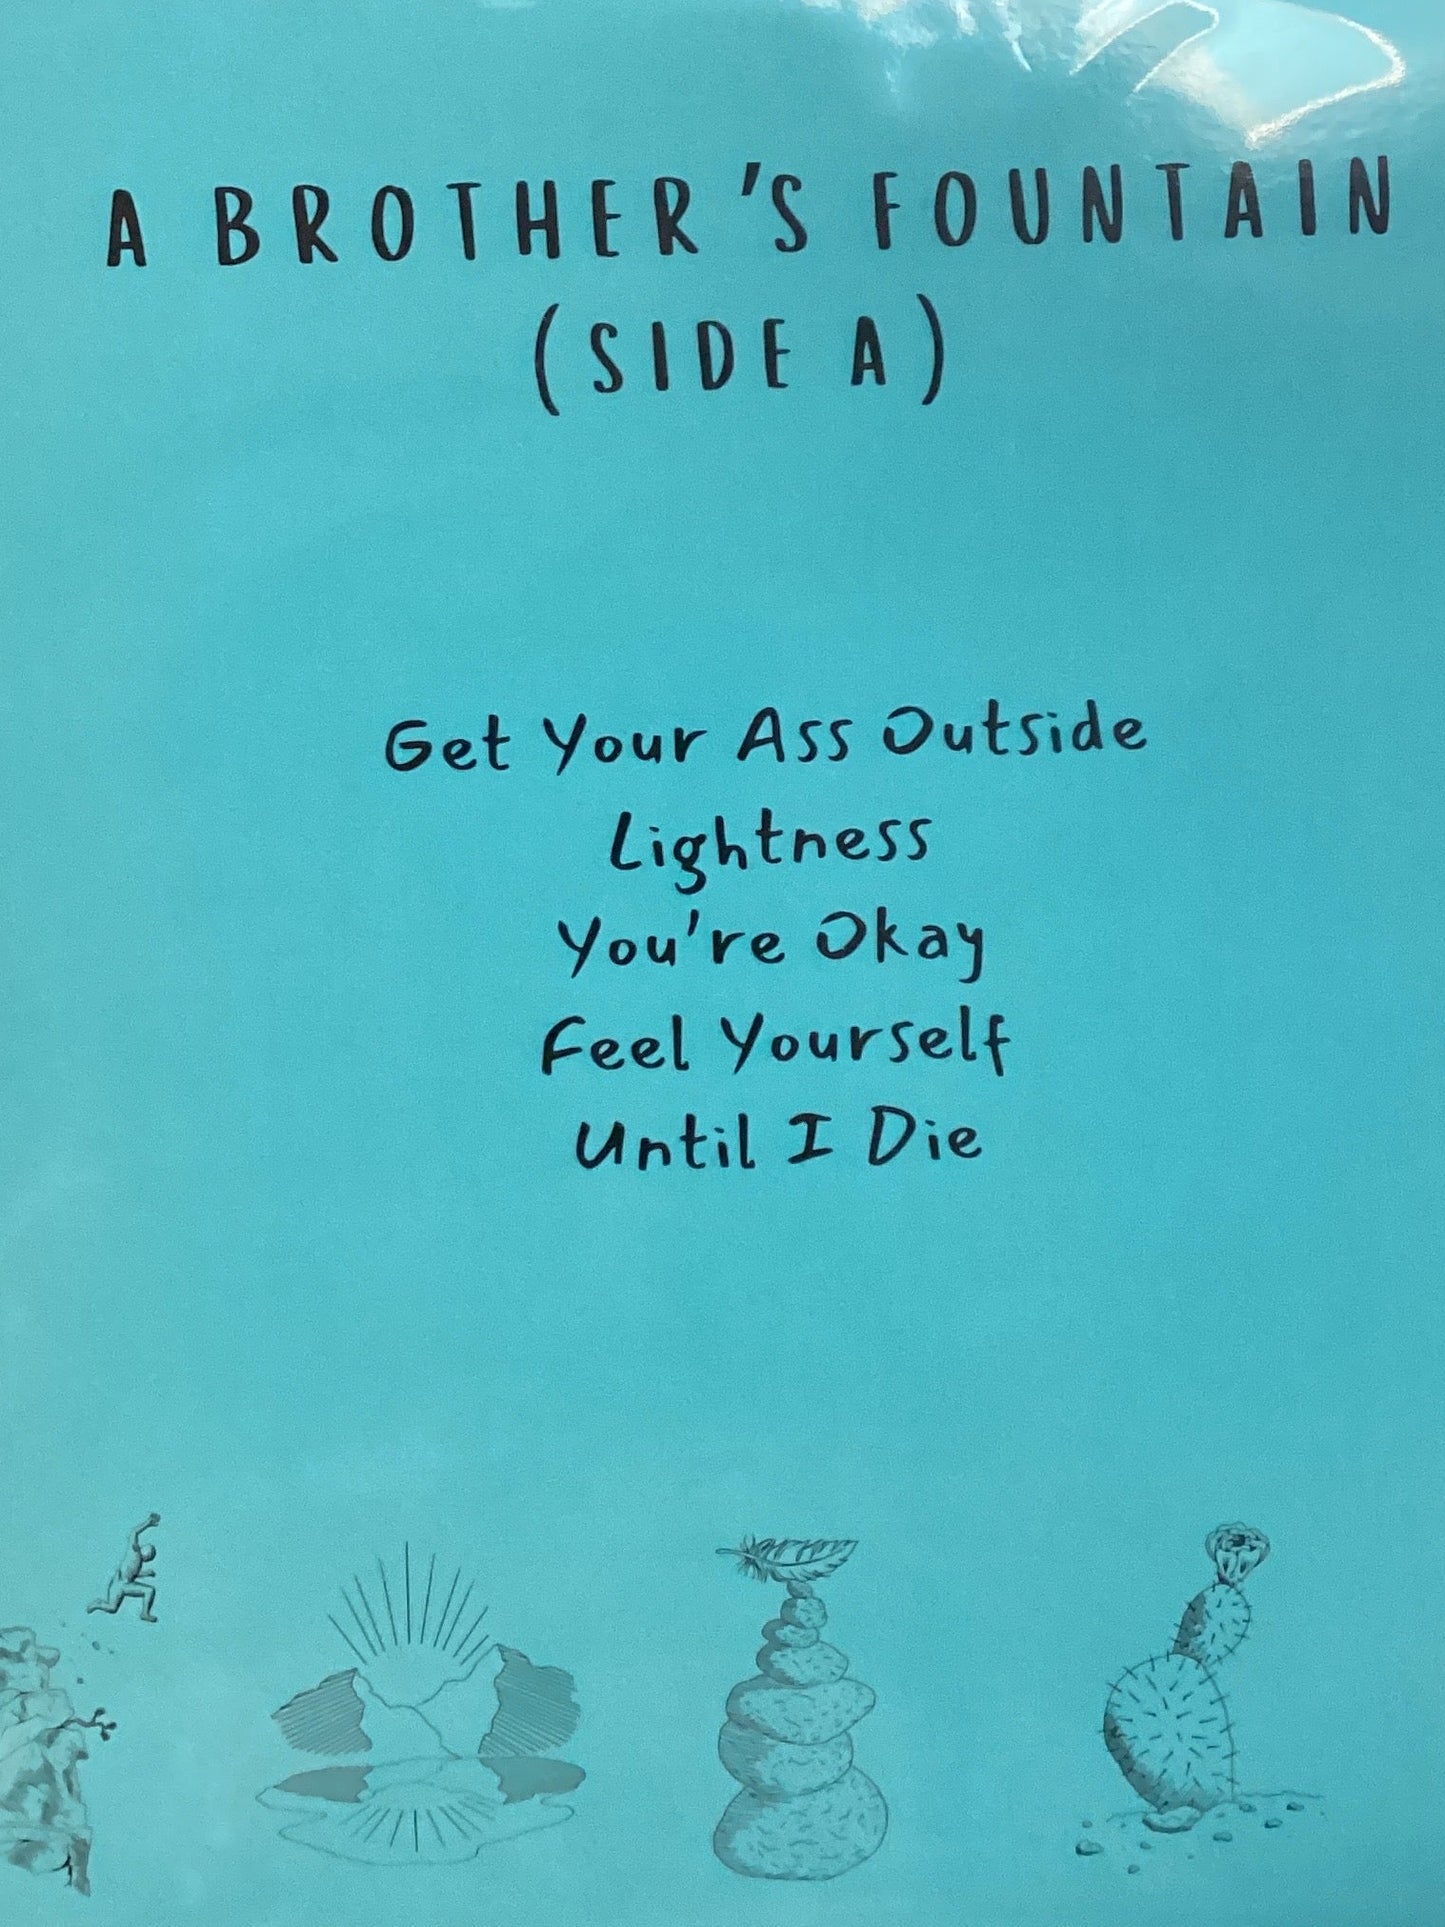 A BROTHER'S FOUNTAIN
(SIDE A)
Get Your Ass Outside
Lightness
You're Okay
Feel Yourself
Until I Die